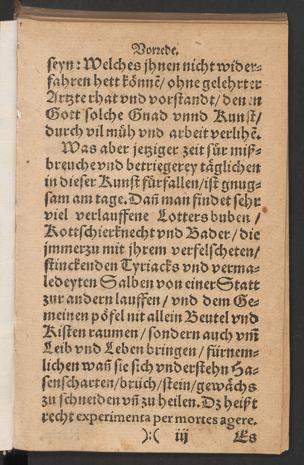 Vorrede.
seyn: Welches jhnen nicht wider-
fahren hett könnē/ ohne gelehrter
Artzte rhat vnd vorstandt/ denen
Gott solche Gnad vnnd Kunst/
durch vil müh vnd arbeit verlihē.
Was aber jetziger zeit für miß-
breuche vnd betriegerey täglichen
in dieser Kunst fürfallen/ ist gnug-
sam am tage. Dañ man findet sehr
viel verlauffene Lottersbuben/
Rottschierknecht vnd Bader/ die
jmmerzu mit jhrem verfelscheten/
stinckenden Tyriacks vnd verma-
ledeyten Salben von einer Statt
zur andern lauffen/ vnd dem Ge-
meinen pöfel nit allein Beutel vnd
Kisten raumen/ sondern auch vm̄
Leib vnd Leben bringen/ fürnem-
lichen wañ sie sich vnderstehn Ha-
senscharten/ brüch/ stein/ gewächs
zu schneiden vñ zu heilen. Dz heißt
recht experimenta per mortes agere.
):( iij Es